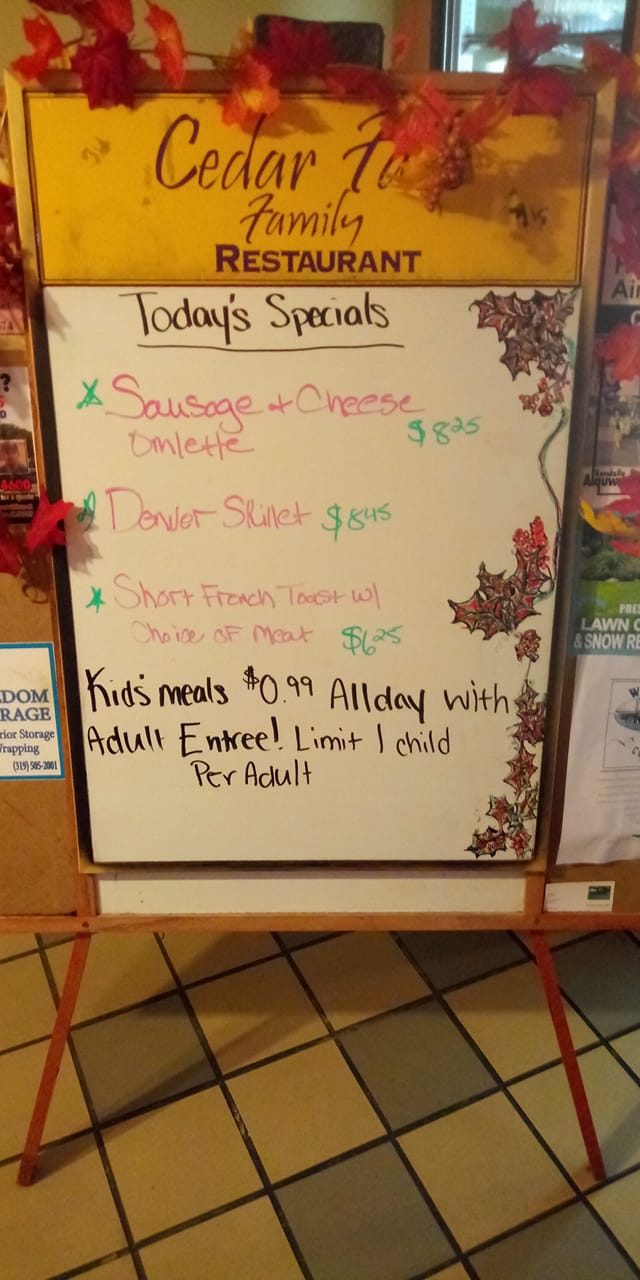 Cedar
Family
RESTAURANT
Today's Specials
Sausage + Cheese
Omlette $8.25
Denver Skillet $8.45
Short French Toast w/
Choice of Meat $6.25
Kid's meals $0.99 All day with
Adult Entree! Limit 1 child
Per Adult
Storage
Wrapping
(319) 505-2001
LAWN
& SNOW